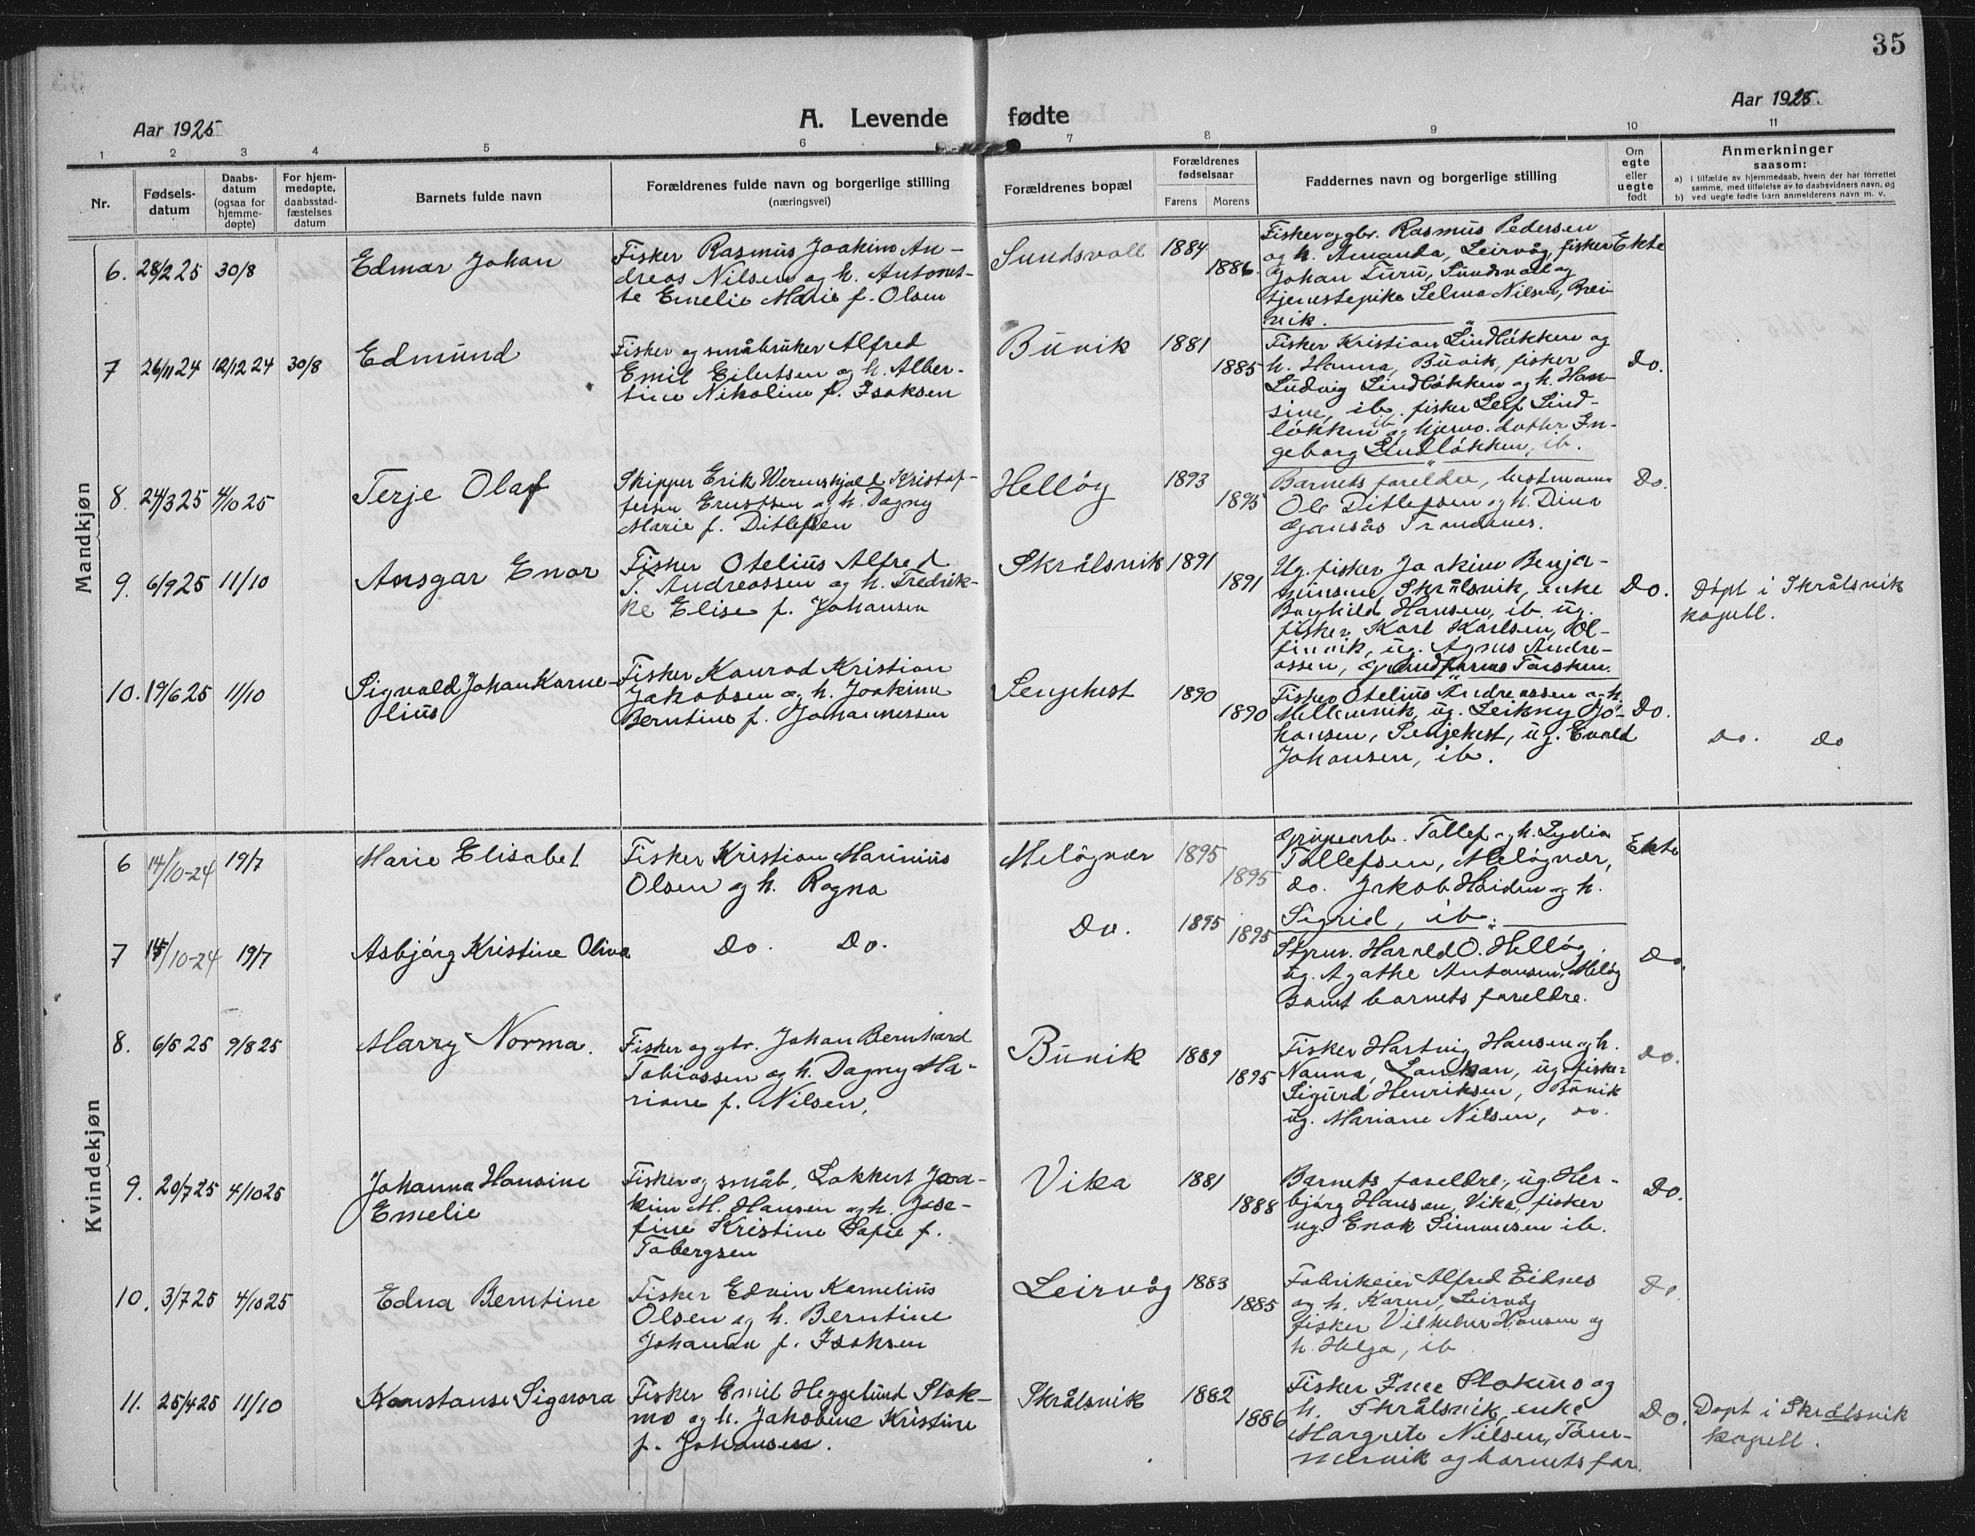 35
Aar 1925
A. Levende fødte
Aar 1925.
1 2 3 4 5 6 7 8 9 10 11
Nr.
Fødsels-
datum
Daabs-
datum
(ogsaa for
hjemme-
døpte)
For hjem-
medøpte,
daabsstad-
fæstelses
datum
Barnets fulde navn
Forældrenes fulde navn og borgerlige stilling
(næringsvei)
Forældrenes bopæl
Forældrenes
fødselsaar
Farens Morens
Faddernes navn og borgerlige stilling
Om
egte
eller
uegte
født
Anmerkninger
saasom:
a) i tilfælde av hjemmedaab, hvem der har forrettet
samme, med tilføielse av to daabsvidners navn, og
b) ved uegte fødte barn anmelderens navn m. v.
Mandkjøn
6. 28/2 25 30/8
Edmar Johan
Fisker Rasmus Joakim An-
dreas Nilsen og h. Antonet-
te Emelie Marie f. Olsen
Sundsvoll
1884
1886.
Fisker og gbr. Rasmus Pedersen
og h. Amanda, Leirvåg, fisker
Johan Turu, Sundsvoll og
tjenestepike Selma Nilsen, Brei
vik.
Ekte
7 26/11 24 12/12 24 30/8
Edmund
Fisker og småbruker Alfred
Emil Eilertsen og h. Alber-
tine Nikoline f. Isaksen
Buvik
1881
1885
Fisker Kristian Lindløkken og
h. Hanna, Buvik, fisker
Ludvig Lindløkken og h. Han-
sine, ib. fisker Leif Lind-
løkken ib og hjemv. datter In-
geborg Lindløkken, ib.
Do.
8. 24/3 25 4/10 25
Terje Olaf
Skipper Erik Wernskjold Kristof-
fersen Ernstsen og h. Dagny
Marie f. Ditlefsen
Helløy
1893
1895
Barnets foreldre, lostmann
Ole Ditlefsen og h. Dina
Gansås Trondenes.
Do.
9. 6/9 25 11/10
Ansgar Enor
Fisker Otelius Alfred
T. Andreassen og h. Fredrik-
ke Elise f. Johansen
Skrålsvik
1891
1891
Ug. fisker Joakim Benja-
minsen, Skrålsvik, enke
Borghild Hansen, ib. ug.
fisker Karl Karlsen, Ol-
finvik, ug. Agnes Andre-
assen,
Do.
Døpt i Skrålsvik
kapell.
10. 19/6 25 11/10
Sigvald Johan Korne-
lius
Fisker Konrad Kristian
Jakobsen og h. Joakime
Berntine f. Johannessen
Senjehest
1890
1890
Fisker Otelius Andreassen og h.
Mellemvik, ug. Leikny Jo-
hansen, Senjehest, ug. Evald
Johansen, ib.
Do.
Do. Do
Kvindekjøn
6 14/10-24 19/7
Marie Elisabet
Fisker Kristian Marinius
Olsen og h. Ragna
Meløyvær
1895
1895
Gruvearb. Tollef og h. Lydia
Tollefsen, Meløyvær,
do. Jakob Heiden og h.
Sigrid, ib.
Ekte
7 14/10-24 19/7
Asbjørg Kristine Oliva
Do. Do.
Do.
1895
1895
Styrm. Harald O. Helløy
ug. Agathe Antonsen, Meløy
samt barnets foreldre.
Do.
8. 6/5 25 9/8 25
Marry Norma.
Fisker og gbr. Johan Bernhard
Tobiassen og h. Dagny Ma-
riane f. Nilsen,
Buvik
1889
1895
Fisker Hartvig Hansen og h.
Nanna, Lankan, ug. fisker
Sigurd Henriksen, Buvik
ug. Mariane Nilsen, do.
do.
9. 20/7 25 4/10 25
Johanna Hansine
Emelie
Fisker og småb. Lokkert Joa-
kim M. Hansen og h. Jose-
fine Kristine Sofie f.
Tobergsen
Vika
1881
1888
Barnets foreldre, ug. Her-
bjørg Hansen, Vika, fisker
ug. Enok Simonsen ib.
Do.
10. 3/7 25 4/10 25
Edna Berntine
Fisker Edvin Kornelius
Olsen og h. Berntine
Johanna f. Isaksen
Leirvåg
1883
1885
Fabrikeier Alfred Eidnes
og h. Karen, Leirvåg
fisker Vilhelm Hansen og
h. Helga, ib.
Do.
11. 25/4 25 11/10
Konstanse Signora
Fisker Emil Heggelund Stok-
mo og h. Jakobine Kristine
f. Johansen.
Skrålsvik
1882
1886
Fisker Stokmo og
h. Skrålsvik, enke
Margrete Nilsen, Tom-
mervik og barnets far.
Do.
Døpt i Skrålsvik
kapell.